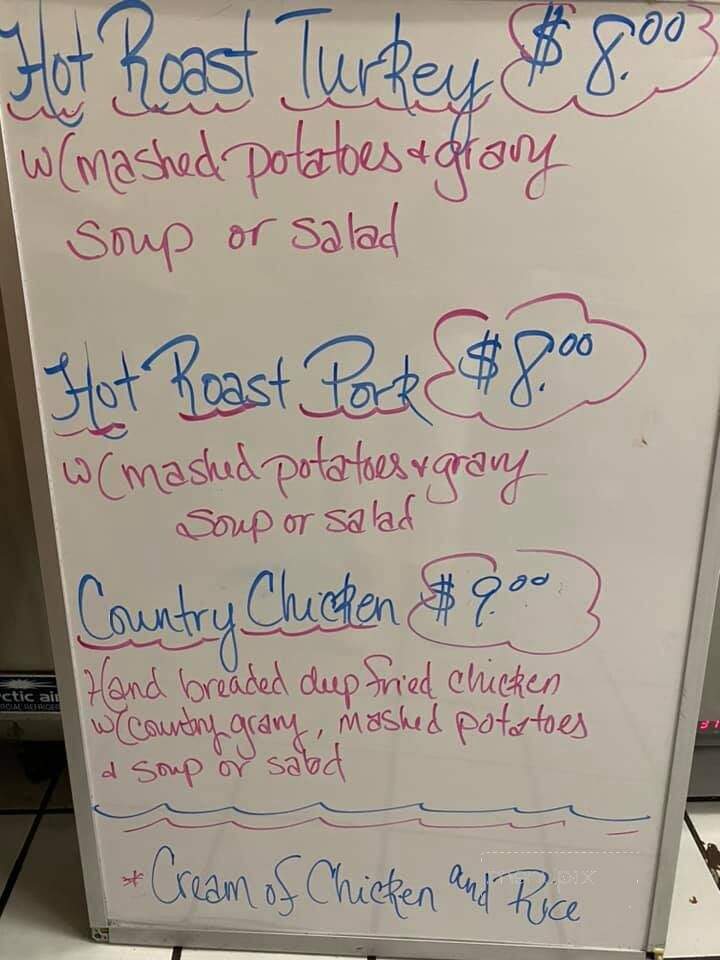 Hot Roast Turkey $8.00
w/mashed potatoes & gravy
soup or salad
Hot Roast Pork $8.00
w/mashed potatoes & gravy
soup or salad
Country Chicken $9.00
Hand breaded deep fried chicken
w/country gravy, mashed potatoes
& soup or salad
*Cream of Chicken and Rice
ctic air
31